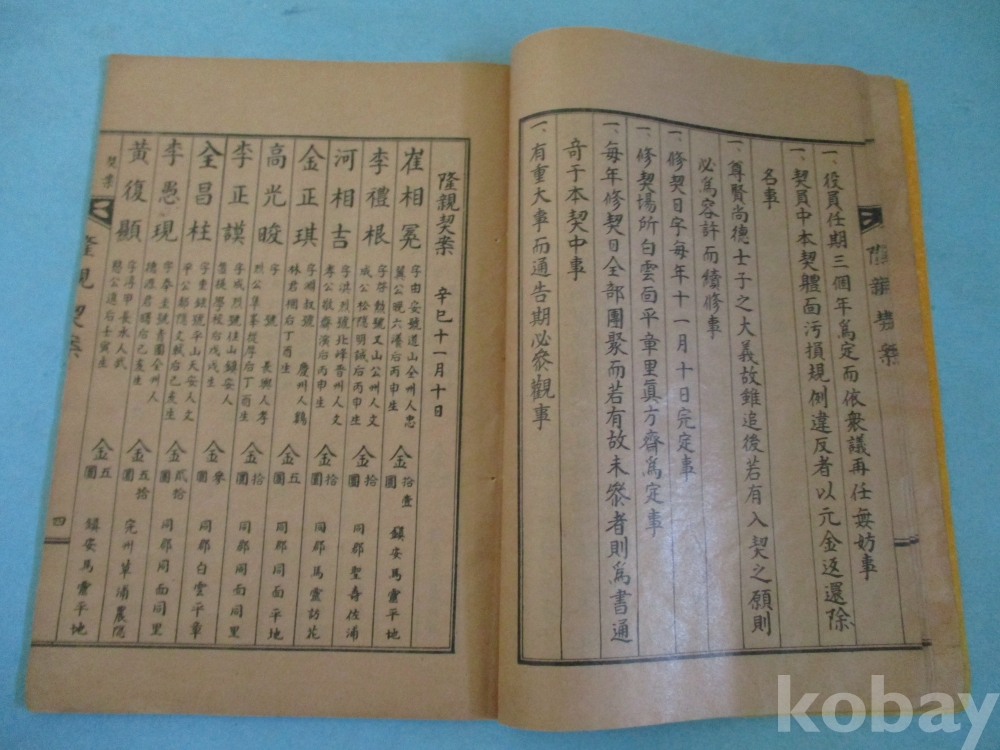 隆親契案
一、役員任期三個年爲定而依衆議再任無妨事
一、契員中本契體面污損規例違反者以元金返還除
名事
一、尊賢尚德士子之大義故雖追後若有入契之願則
必爲容許而續修事
一、修契日字每年十一月十日完定事
一、修契場所白雲面平章里眞方齊爲定事
一、每年修契日全部團聚而若有故未參者則爲書通
奇于本契中事
一、有重大事而通告期必參觀事
隆親契案 辛巳十一月十日
崔相冕 字由安號道山全州人忠 翼公晩六潘后丙申生 金拾壹圓 鎭安馬靈平地
李禮根 字啓勲號又山公州人文 成公松隱明誠后丙申生 金拾圓 同郡聖壽佐浦
河相吉 字洪烈號北峰晋州人文 孝公敬齋演后丙申生 金拾圓 同郡馬靈訪花
金正琪 字淵叔號 慶州人鷄 林君稛后丁酉生 金五圓 同郡同面平地
高光晙 字 號 長興人孝 烈公準峯從厚后丁酉生 金拾圓 同郡同面同里
李正謨 字成烈號桂山鎭安人 金參圓 同郡白雲平章
全昌柱 字重錄號平山天安人文 平公郡隱文軾后己亥生 金貳拾圓 同郡同面同里
李愚現 字泰圭號青園全州人 己亥生 金五拾圓 完州草浦農隱
黄復顯 字淳甲長水人武 愍公進后壬寅生 金五圓 鎭安馬靈平地
契案
隆親契案
四
kobay